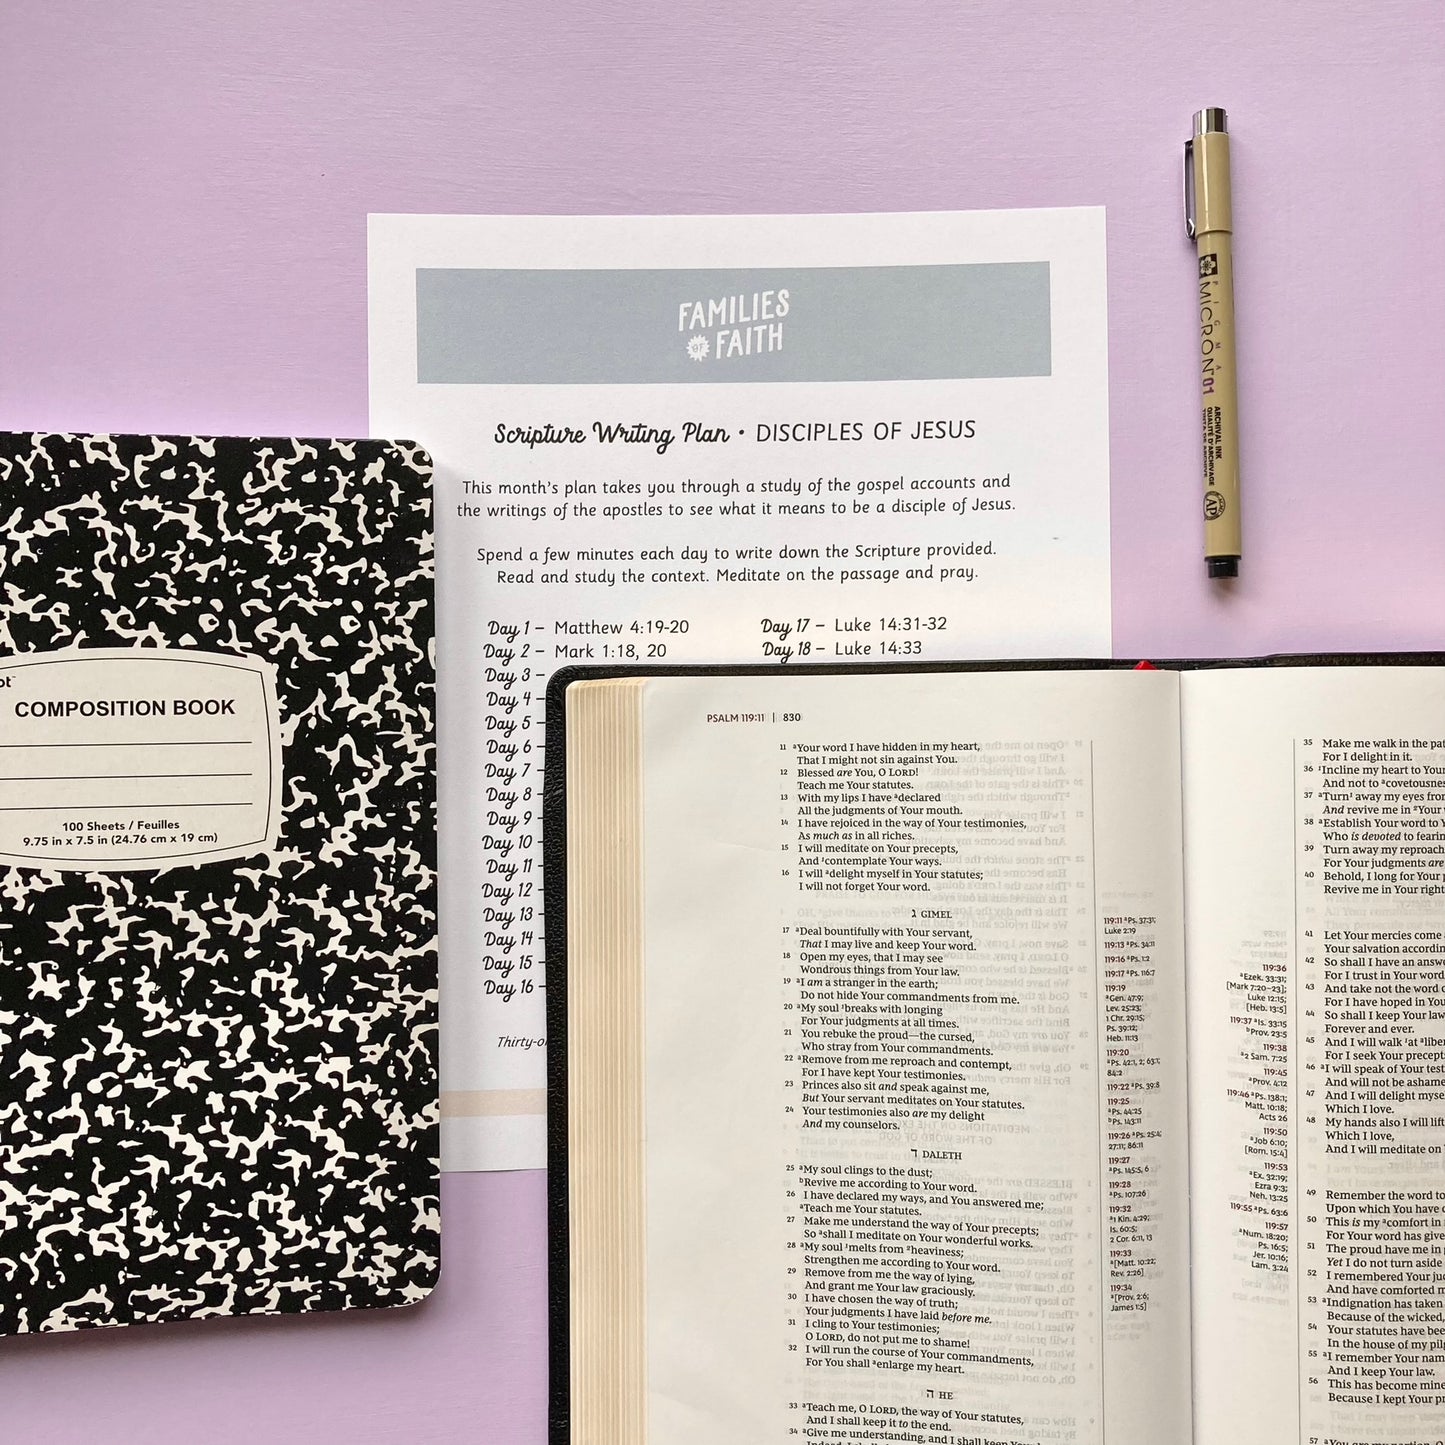 FAMILIES
OF FAITH
Scripture Writing Plan • DISCIPLES OF JESUS
This month's plan takes you through a study of the gospel accounts and
the writings of the apostles to see what it means to be a disciple of Jesus.
Spend a few minutes each day to write down the Scripture provided.
Read and study the context. Meditate on the passage and pray.
Day 1 – Matthew 4:19-20
Day 2 – Mark 1:18, 20
Day 3 –
Day 4 –
Day 5 –
Day 6 –
Day 7 –
Day 8 –
Day 9 –
Day 10 –
Day 11 –
Day 12 –
Day 13 –
Day 14 –
Day 15 –
Day 16 –
Day 17 – Luke 14:31-32
Day 18 – Luke 14:33
PIGMA
MICRON 01
ARCHIVAL INK
QUALITÉ D'ARCHIVAGE
TINTA DE ARCHIVE
AP
COMPOSITION BOOK
100 Sheets / Feuilles
9.75 in x 7.5 in (24.76 cm x 19 cm)
PSALM 119:11 | 830
11 ªYour word I have hidden in my heart,
That I might not sin against You.
12 Blessed are You, O LORD!
Teach me Your statutes.
13 With my lips I have ªdeclared
All the judgments of Your mouth.
14 I have rejoiced in the way of Your testimonies,
As much as in all riches.
15 I will meditate on Your precepts,
And ¹contemplate Your ways.
16 I will ªdelight myself in Your statutes;
I will not forget Your word.
ג GIMEL
17 ªDeal bountifully with Your servant,
That I may live and keep Your word.
18 Open my eyes, that I may see
Wondrous things from Your law.
19 ªI am a stranger in the earth;
Do not hide Your commandments from me.
20 ªMy soul ¹breaks with longing
For Your judgments at all times.
21 You rebuke the proud—the cursed,
Who stray from Your commandments.
22 ªRemove from me reproach and contempt,
For I have kept Your testimonies.
23 Princes also sit and speak against me,
But Your servant meditates on Your statutes.
24 Your testimonies also are my delight
And my counselors.
ד DALETH
25 ªMy soul clings to the dust;
ᵇRevive me according to Your word.
26 I have declared my ways, and You answered me;
ªTeach me Your statutes.
27 Make me understand the way of Your precepts;
So ªshall I meditate on Your wonderful works.
28 ªMy soul ¹melts from ²heaviness;
Strengthen me according to Your word.
29 Remove from me the way of lying,
And grant me Your law graciously.
30 I have chosen the way of truth;
Your judgments I have laid before me.
31 I cling to Your testimonies;
O LORD, do not put me to shame!
32 I will run the course of Your commandments,
For You shall ªenlarge my heart.
ה HE
33 ªTeach me, O LORD, the way of Your statutes,
And I shall keep it to the end.
34 ªGive me understanding, and I shall keep
119:11 ªPs. 37:31;
Luke 2:19
119:13 ªPs. 34:11
119:16 ªPs. 1:2
119:17 ªPs. 116:7
119:19
ªGen. 47:9;
Lev. 25:23;
1 Chr. 29:15;
Ps. 39:12;
Heb. 11:13
119:20
ªPs. 42:1, 2; 63:1;
84:2
119:22 ªPs. 39:8
119:25
ªPs. 44:25
ᵇPs. 143:11
119:26 ªPs. 25:4;
27:11; 86:11
119:27
ªPs. 145:5, 6
119:28
ªPs. 107:26
119:32
ª1 Kin. 4:29;
Is. 60:5;
2 Cor. 6:11, 13
119:33
ª[Matt. 10:22;
Rev. 2:26]
119:34
ª[Prov. 2:6;
James 1:5]
119:36
ªEzek. 33:31;
[Mark 7:20–23];
Luke 12:15;
[Heb. 13:5]
119:37 ªIs. 33:15
ᵇProv. 23:5
119:38
ª2 Sam. 7:25
119:45
ªProv. 4:12
119:46 ªPs. 138:1;
Matt. 10:18;
Acts 26
119:50
ªJob 6:10;
[Rom. 15:4]
119:53
ªEx. 32:19;
Ezra 9:3;
Neh. 13:25
119:55 ªPs. 63:6
119:57
ªNum. 18:20;
Ps. 16:5;
Jer. 10:16;
Lam. 3:24
35 Make me walk in the
For I delight in it.
36 ¹Incline my heart to Your
And not to ªcovetousness
37 ªTurn¹ away my eyes
And revive me in ²Your
38 ªEstablish Your word to
Who is devoted to
39 Turn away my
For Your judgments are
40 Behold, I long for Your
Revive me in Your
41 Let Your mercies come
Your salvation
42 So shall I have an
For I trust in Your word
43 And take not the word
For I have hoped in
44 So shall I keep Your
Forever and ever.
45 And I will walk ¹at
For I seek Your
46 ªI will speak of Your
And will not be
47 And I will delight
Which I love.
48 My hands also I will lift
Which I love,
And I will meditate on
49 Remember the word to
Upon which You have
50 This is my ªcomfort in
For Your word has
51 The proud have me in
Yet I do not turn aside
52 I remembered Your
And have comforted
53 ªIndignation has taken
Because of the wicked,
54 Your statutes have
In the house of my
55 ªI remember Your
And I keep Your law.
56 This has become mine
Because I kept Your
57